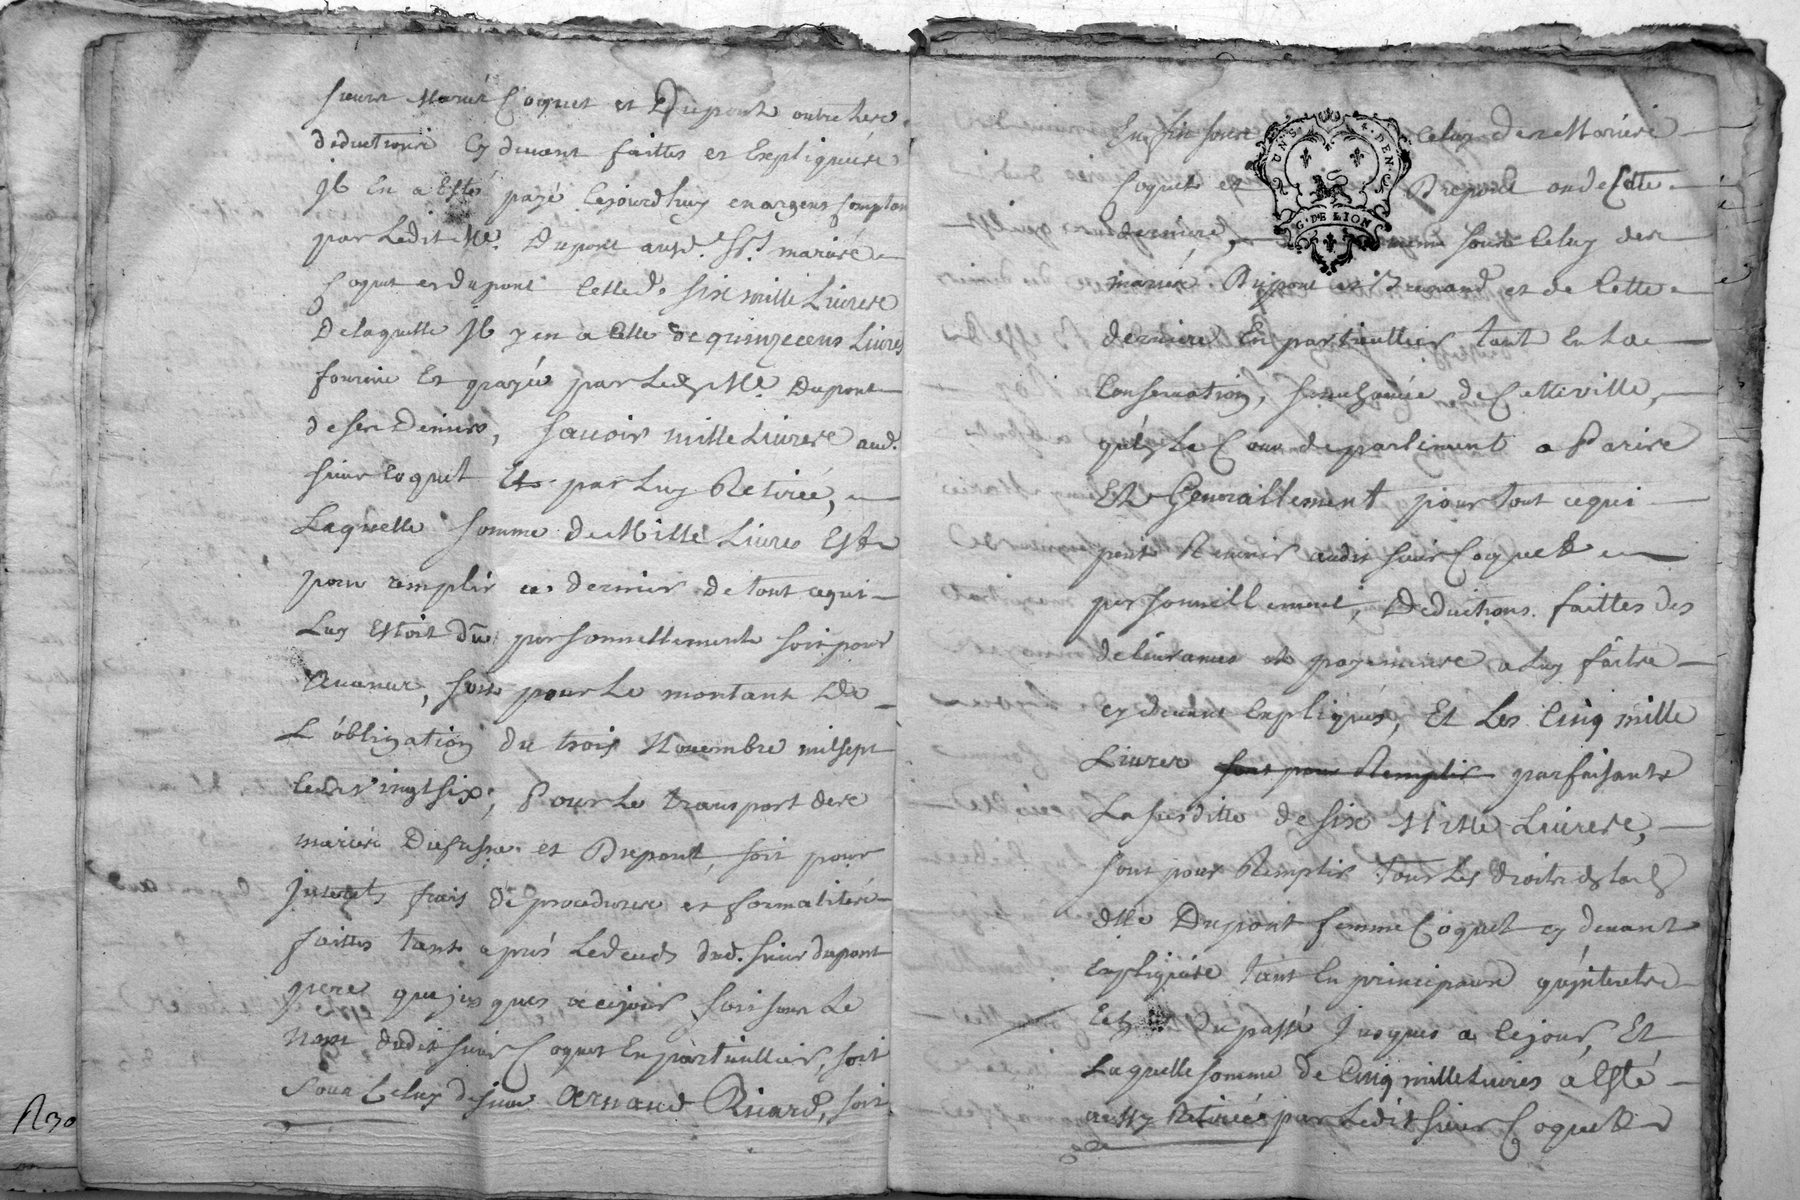 sieurs mariés Coquet et Dupont outre les
deductions cy devant faittes et Expliquées
Il En a Esté payé cejourdhuy en argens comptan
par Ledit Me. Dupont ausd. Srs. mariés
Coquet et dupont cette de six mille Livres
De laquelle Il y en a celle de quinzecens Livres
fournie Et payée par Led. Me. Dupont
de ses Deniers, sauoir mille Livres aud.
sieur Coquet Et par Luy Retirée,
Laquelle somme de Mille Livres Est
pour remplir ce dernier de tout cequi
Luy Estoit dû personnellement soit pour
avance, soit pour Le montant de
L'obligation du trois Novembre milsept
cens vingt six, Pour Le transport des
mariés Dufresne et Dupont, soit pour
Interets frais de procedures et formalités
faittes tant apres Le deceds dud. sieur dupont
pere que jusques a cejour soit sous Le
Nom dudit sieur Coquet En particullier, soit
sous Celuy de sieur Arnaud Ricard, soit
R 30
En fin sous celuy des Mariés
Coquet et Dupont ou de Cette
derniere, sous Celuy des
mariés Dupont et Brenard et de Cette
derniere En particullier tant En La
Conservation, senechaussée de Cette ville,
qu'En La Cour de parlement a Paris
Et Generallement pour tout cequi
peut Revenir audit sieur Coquet
personnellement, Deductions faittes des
delivrances et payemens a Luy faitte
cy devant Expliqués, Et Les Cinq mille
Livres sont pour Remplir parfaisants
La susditte de six Mille Livres,
sont pour Remplir tous Les droits de lad.
dlle Dupont femme Coquet cy devant
Expliqués tant En principaux qu'interets
Et du passé Jusques a cejour, Et
Laquelle somme de Cinq mille Livres a Esté
aussy Retirée par Ledit sieur Coquet
G. DE LION